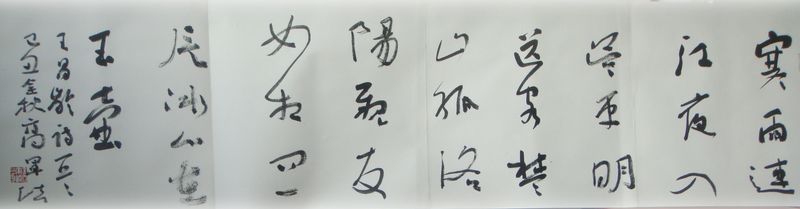 寒雨連
江夜入
吳平明
送客楚
山孤洛
陽親友
如相問
一片冰心在
玉壺
王昌齡詩一首
己丑金秋